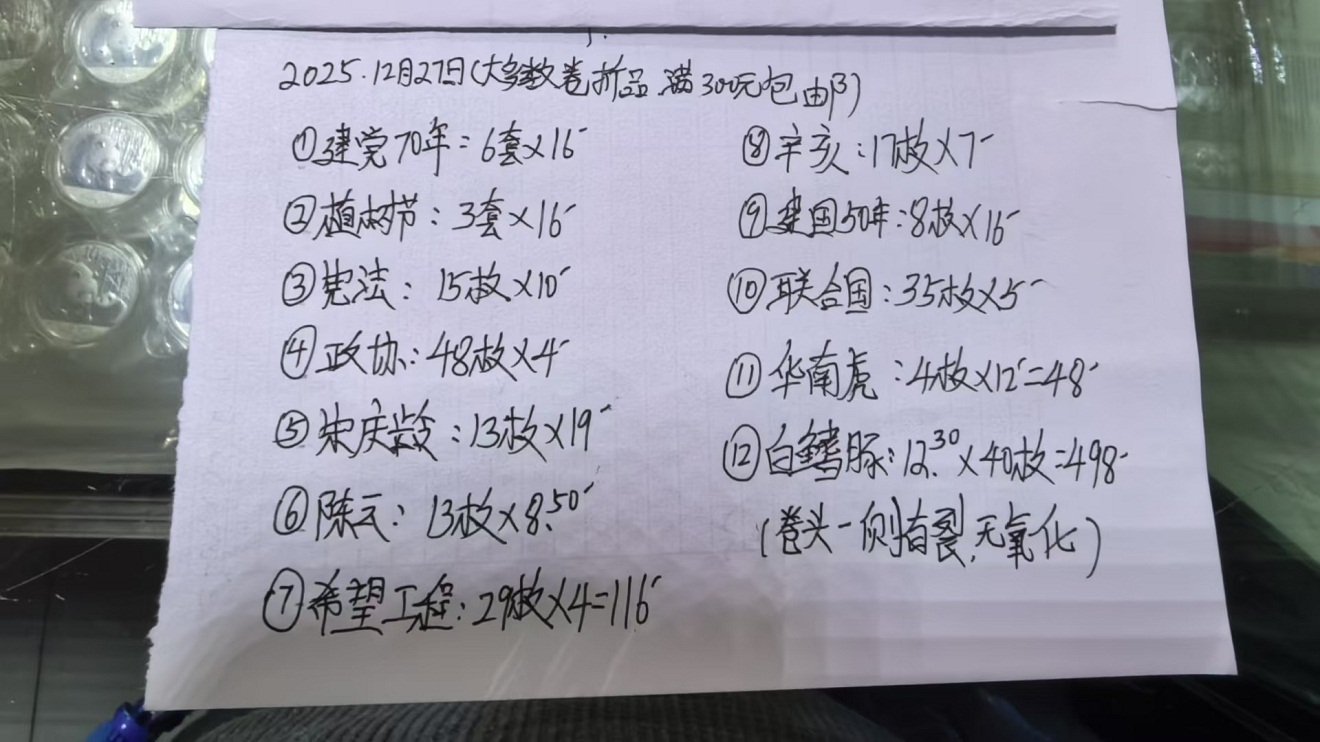 2025.12月27日(大多数卷拆品.满300元包由阝)
①建党70年:6套×16-
②植树节:3套×16-
③宪法:15枚×10-
④政协:48枚×4-
⑤宋庆龄:13枚×19-
⑥陈云:13枚×8.50-
⑦希望工程:29枚×4=116-
⑧辛亥:17枚×7-
⑨建国50年:8枚×16-
⑩联合国:35枚×5-
⑪华南虎:4枚×12-=48-
⑫白鳍豚:12.30×40枚=498-
(卷头一侧有裂,无氧化)